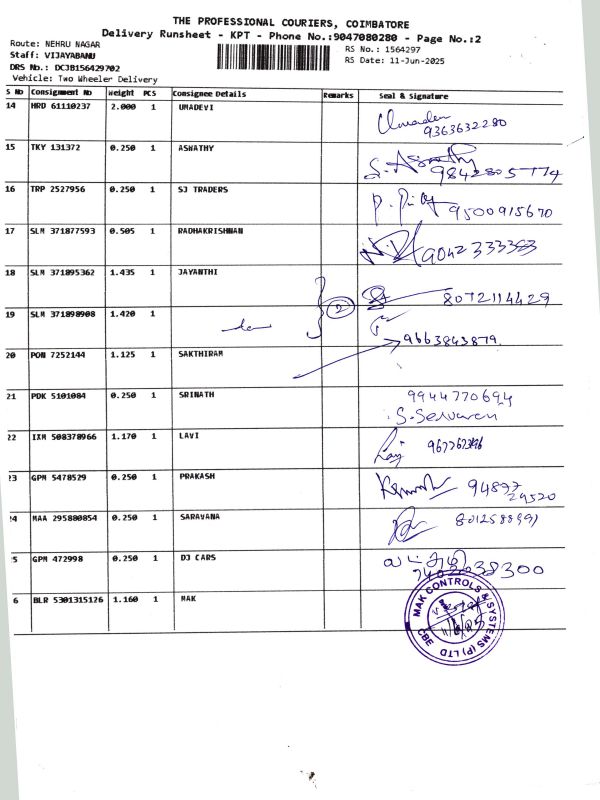 THE PROFESSIONAL COURIERS, COIMBATORE
Delivery Runsheet - KPT - Phone No.:9047080280 - Page No.:2
Route: NEHRU NAGAR
RS No.: 1564297
Staff: VIJAYABANU
RS Date: 11-Jun-2025
DRS No.: DCJB156429702
Vehicle: Two Wheeler Delivery
S No Consignment No Weight PCS Consignee Details Remarks Seal & Signature
14 HRD 61110237 2.000 1 UMADEVI Umadevi
9363632280
15 TKY 131372 0.250 1 ASWATHY S. Aswathy
9842805774
16 TRP 2527956 0.250 1 SJ TRADERS 9500915670
17 SLM 371877593 0.505 1 RADHAKRISHNAN 9042333383
18 SLM 371895362 1.435 1 JAYANTHI 8072114429
19 SLM 371898908 1.420 1 2
9663843879
20 PON 7252144 1.125 1 SAKTHIRAM
21 PDK 5101084 0.250 1 SRINATH 9944770694
S. Servaran
22 IXM 508378966 1.170 1 LAVI
23 GPM 5478529 0.250 1 PRAKASH 94877
29520
24 MAA 295880854 0.250 1 SARAVANA
5 GPM 472998 0.250 1 DJ CARS
6 BLR 5301315126 1.160 1 MAK
MAK CONTROLS & SYSTEMS (P) LTD
CBE
11/6/25